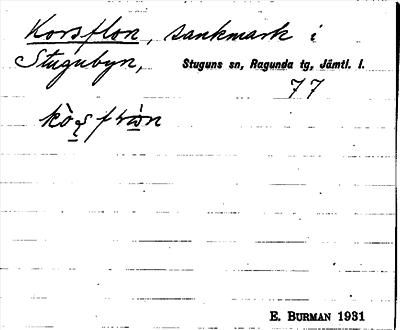 Korsflon, sankmark i
Stugubyn, Stuguns sn, Ragunda tg, Jämtl. l.
77
E. BURMAN 1931